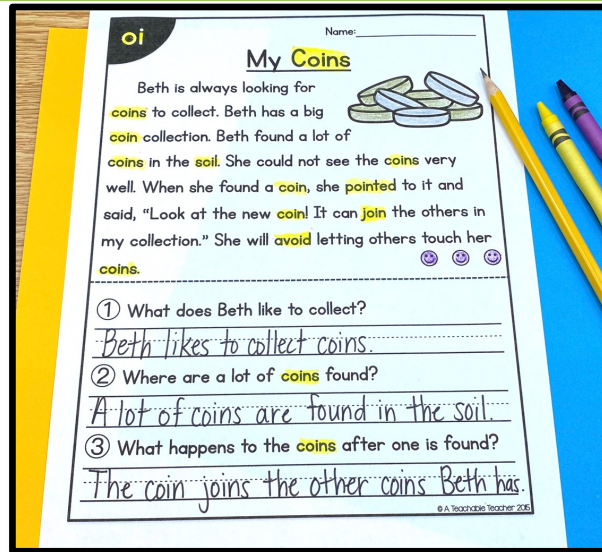 oi
Name:
My Coins
Beth is always looking for
coins to collect. Beth has a big
coin collection. Beth found a lot of
coins in the soil. She could not see the coins very
well. When she found a coin, she pointed to it and
said, “Look at the new coin! It can join the others in
my collection.” She will avoid letting others touch her
coins.
① What does Beth like to collect?
Beth likes to collect coins.
② Where are a lot of coins found?
A lot of coins are found in the soil.
③ What happens to the coins after one is found?
The coin joins the other coins Beth has.
© A Teachable Teacher 2015